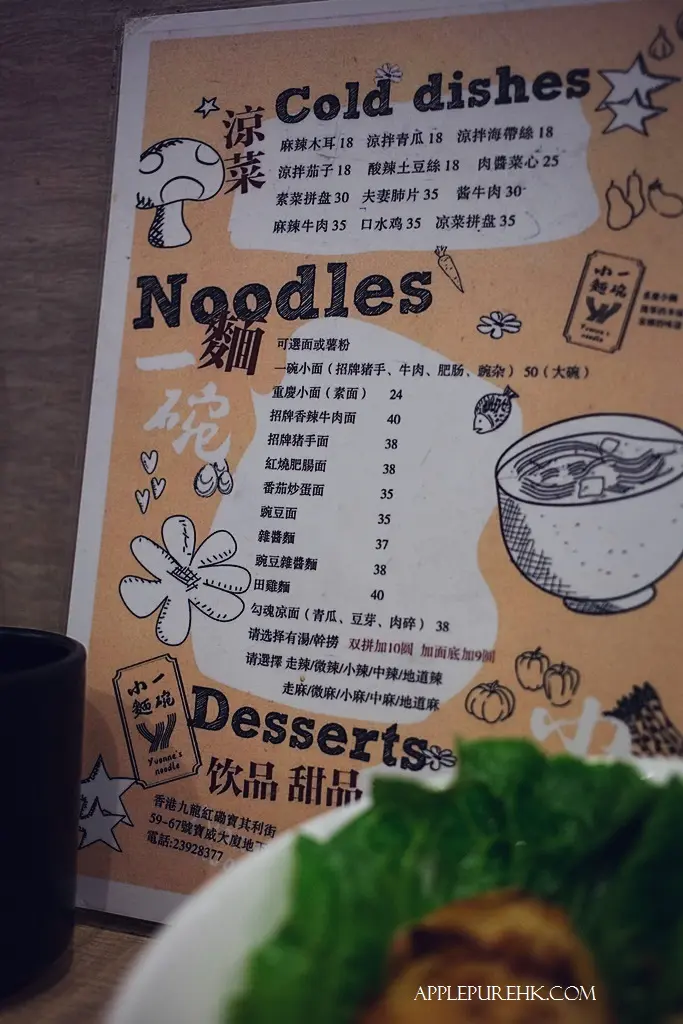 Cold dishes
涼菜
麻辣木耳 18 涼拌青瓜 18 涼拌海帶絲 18
涼拌茄子 18 酸辣土豆絲 18 肉醬菜心 25
素菜拼盘 30 夫妻肺片 35 酱牛肉 30
麻辣牛肉 35 口水鸡 35 凉菜拼盘 35
Noodles
麵
一碗
可選面或薯粉
一碗小面（招牌猪手、牛肉、肥肠、豌杂）50（大碗）
重慶小面（素面） 24
招牌香辣牛肉面 40
招牌猪手面 38
紅燒肥腸面 38
番茄炒蛋面 35
豌豆面 35
雜醬麵 37
豌豆雜醬麵 38
田雞麵 40
勾魂凉面（青瓜、豆芽、肉碎） 38
请选择有湯/幹捞 双拼加10圆 加面底加9圆
请選擇 走辣/微辣/小辣/中辣/地道辣
走麻/微麻/小麻/中麻/地道麻
一碗小麵
Yvonne's
noodle
小
Desserts
饮品 甜品
一碗小麵
Yvonne's
noodle
香港九龍紅磡寶其利街
59-67號寶威大廈地下
電話:23928377
APPLEPUREHK.COM